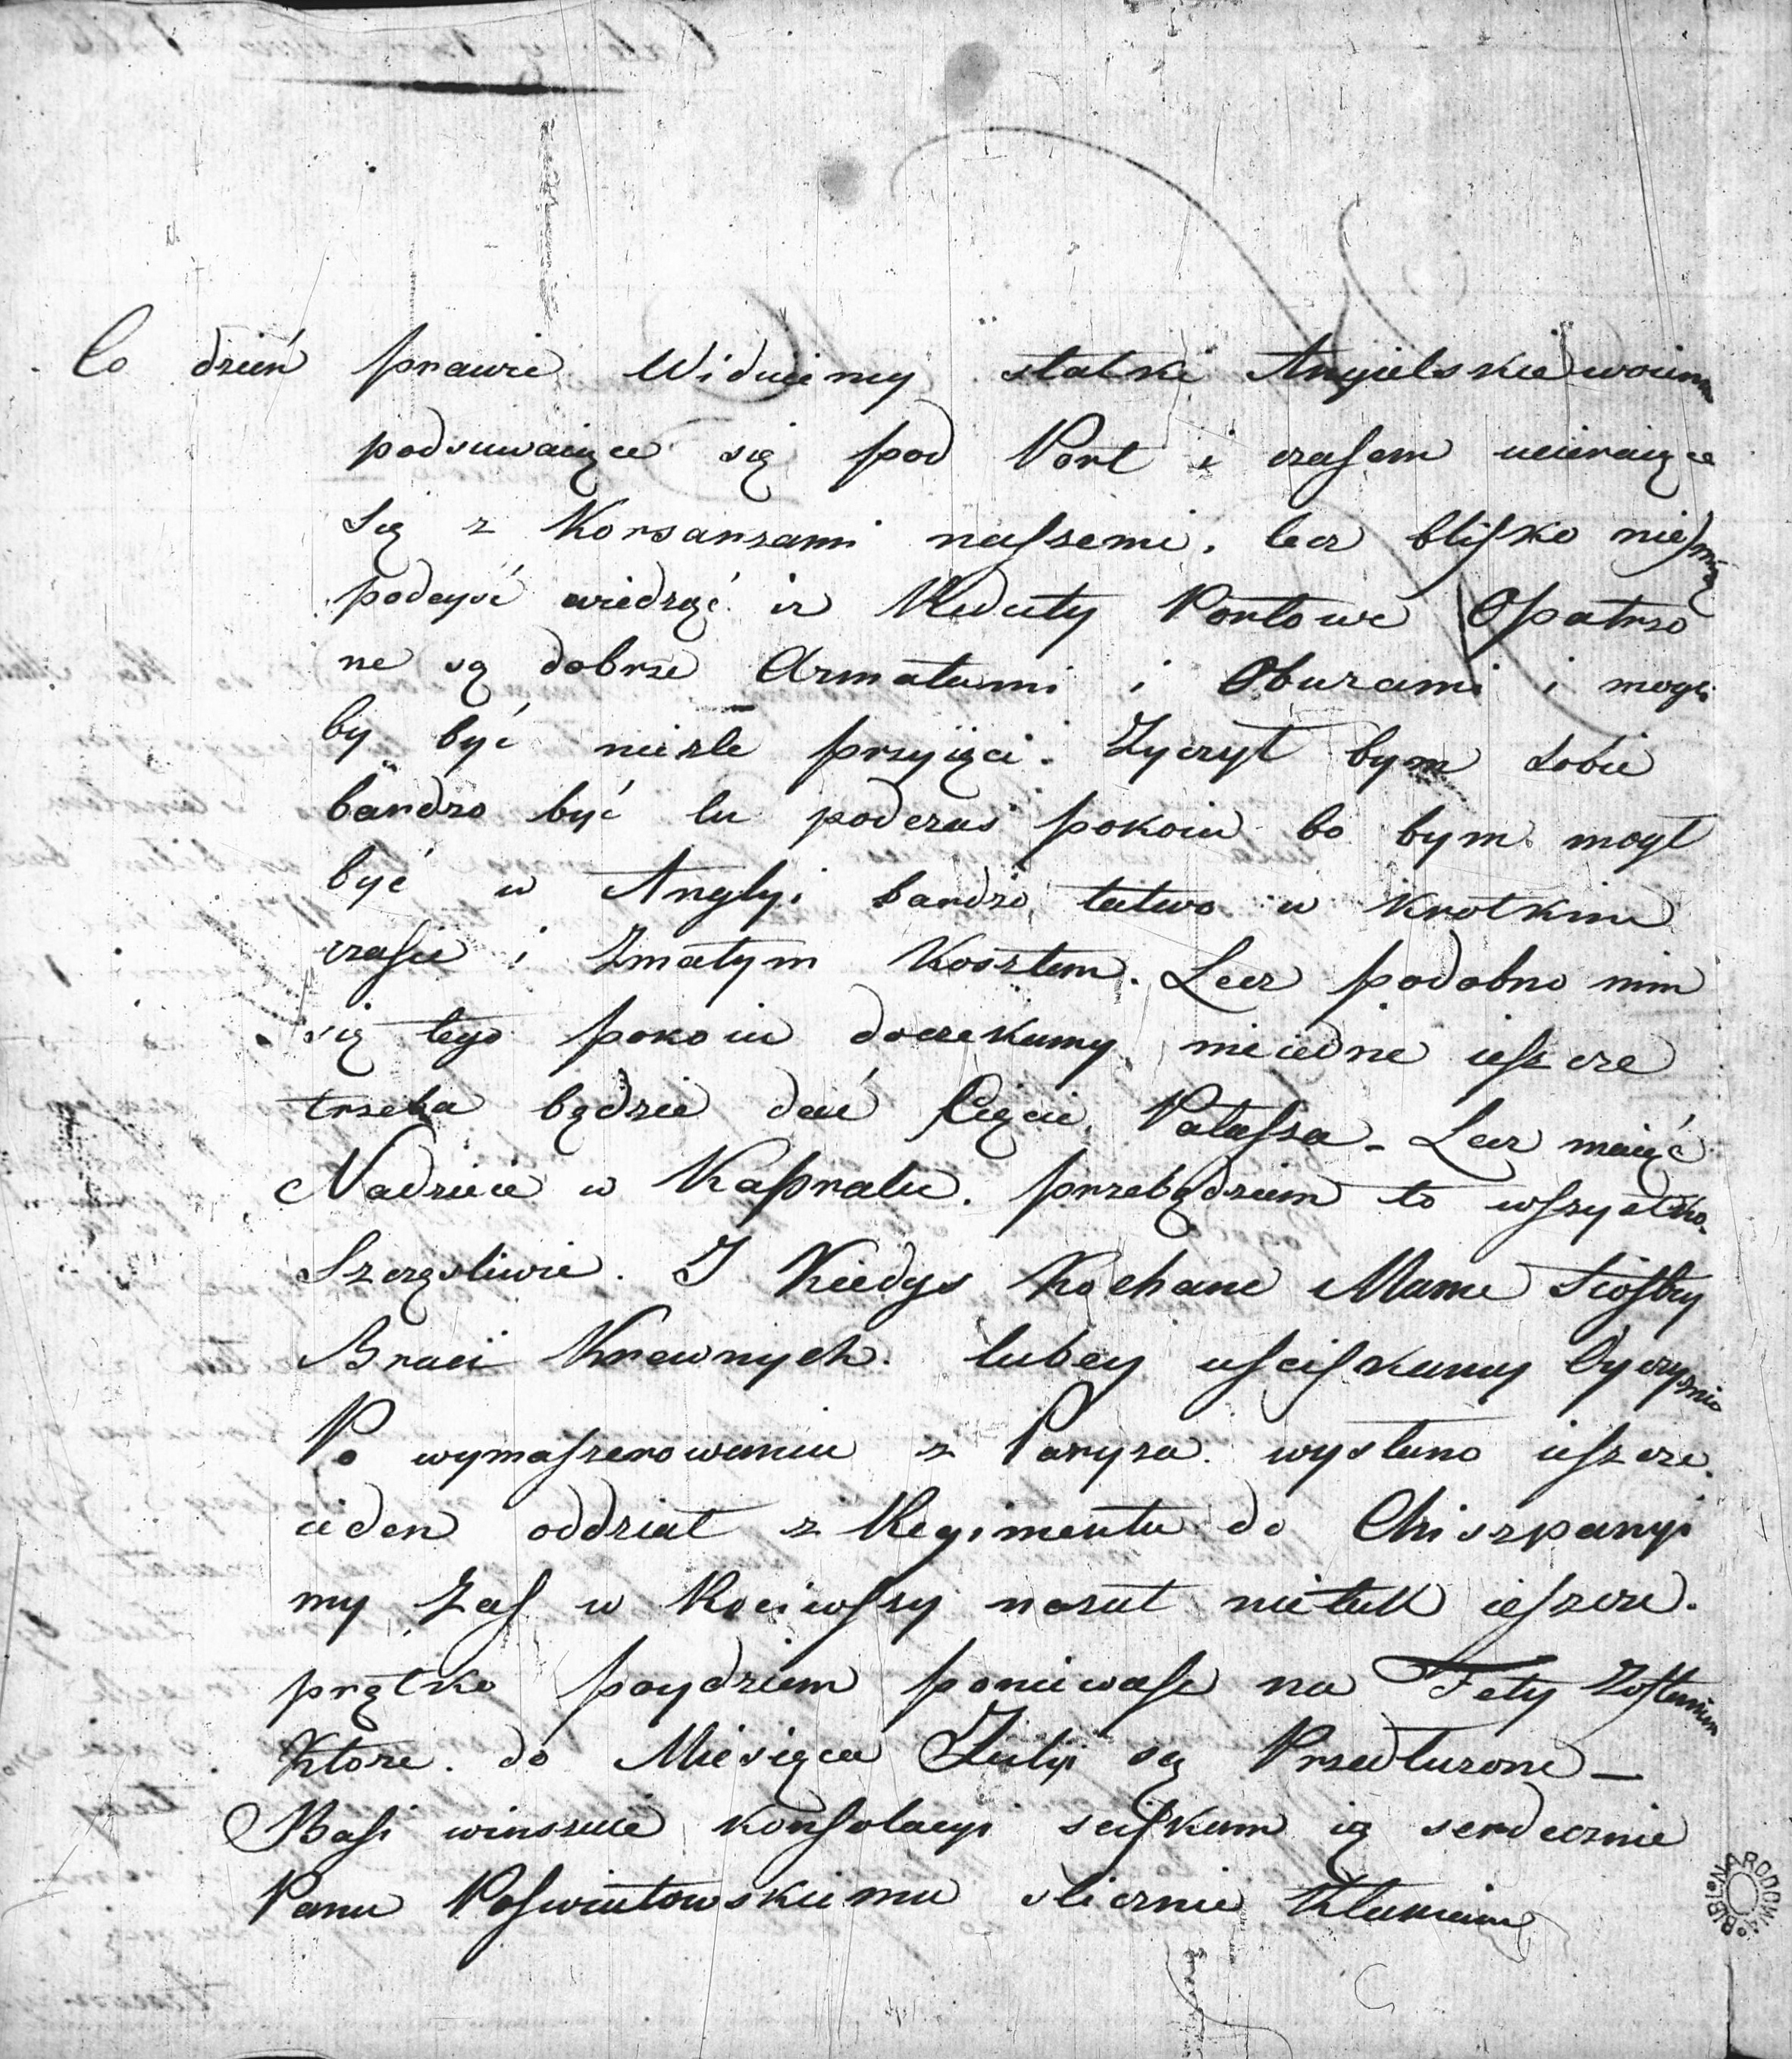 Co dzień prawie Widuiemy statki Angielskie woienn
podsuwaiące się pod Port i czasem ucieraiące
się z Korsarzami naszemi. lecz blisko nieśmią
podeyść wiedząć iż Reduty Portowe Opatrzo
ne są dobrze Armatami i Obuzami i mogli
by być nieźle przyięci. Zyczył bym sobie
bardzo być tu podczas pokoiu bo bym mogł
być w Anglyi bardzo łatwo w krotkim
czasie i Zmałym Kosztem. Lecz podobno nim
się tego pokoiu doczekamy nieiedne ieszcze
trzeba będzie dać Cięcie Pałasza - Lecz maiąć
Nadzieie w Kapralu. przebędziem to wszystko
Szczęsliwie. I Kiedys Kochane Mame Siostry
Braci Krewnych. lubey uściskamy Oyczyznie
Po wymaszerowaniu z Paryza. wysłano ieszcze
ieden oddział z Regimentu do Chiszpanyi
my Zas w Kociwszy nazat nietak ieszcze.
prętko poydziem poniewasz na Fety Zostaniem
Ktore. do Miesięca Julyi są Przedłuzone -
Basi winszuie konsolacyi sciskam ią serdecznie
Panu Poswiatowskiemu slicznie Kłaniam
BIBLIOTEKA NARODOWA